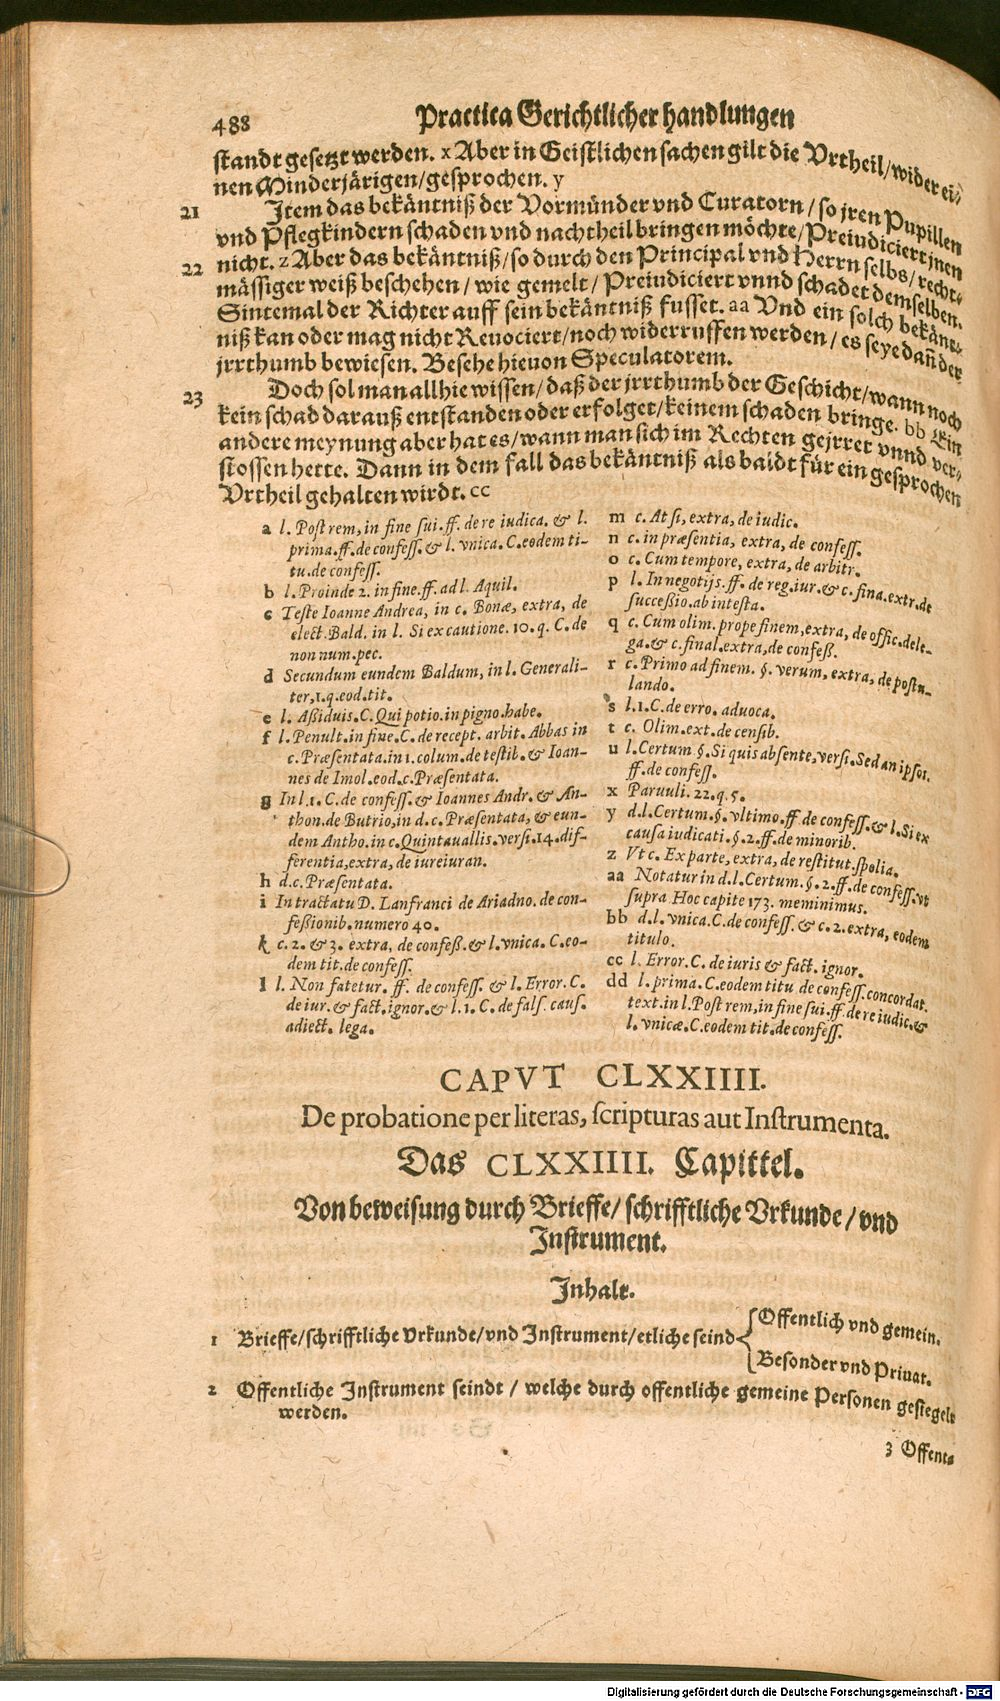 488 Practica Gerichtlicher handlungen
standt gesetzt werden. x Aber in Geistlichen sachen gilt die Vrtheil/wider ei⸗
nen Minderjärigen/gesprochen. y
21 Item das bekäntniß der Vormünder vnd Curatorn/so jren Pupillen
vnd Pflegkindern schaden vnd nachtheil bringen möchte/Preiudiciert jnen
22 nicht. z Aber das bekäntniß/so durch den Principal vnd Herrn selbs/recht⸗
mässiger weiß beschehen/wie gemelt/Preiudiciert vnnd schadet demselben.
Sintemal der Richter auff sein bekäntniß fusset. aa Vnd ein solch bekänt⸗
niß kan oder mag nicht Reuociert/noch widerruffen werden/es seye dañ der
jrrthumb bewiesen. Besehe hieuon Speculatorem.
23 Doch sol man allhie wissen/daß der jrrthumb der Geschicht/wann noch
kein schad darauß entstanden oder erfolget/keinem schaden bringe. bb Ein
andere meynung aber hat es/wann man sich im Rechten gejrret vnnd ver⸗
stossen hette. Dann in dem fall das bekäntniß als baldt für ein gesprochen
Vrtheil gehalten wirdt. cc
a l. Post rem, in fine sui. ff. de re iudica. & l.
prima. ff. de confess. & l. vnica. C. eodem ti-
tu. de confess.
b l. Proinde 2. in fine. ff. ad l. Aquil.
c Teste Ioanne Andrea, in c. Bonæ, extra, de
elect. Bald. in l. Si ex cautione. 10. q. C. de
non num. pec.
d Secundum eundem Baldum, in l. Generali-
ter, 1. q. eod. tit.
e l. Aßiduis. C. Qui potio. in pigno. habe.
f l. Penult. in fine. C. de recept. arbit. Abbas in
c. Præsentata. in 1. colum. de testib. & Ioan-
nes de Imol. eod. c. Præsentata.
g In l. 1. C. de confess. & Ioannes Andr. & An-
thon. de Butrio, in d. c. Præsentata, & eun-
dem Antho. in c. Quintauallis. versi. 14. dif-
ferentia, extra, de iureiuran.
h d. c. Præsentata.
i In tractatu D. Lanfranci de Ariadno. de con-
feßionib. numero 40.
k c. 2. & 3. extra, de confeß. & l. vnica. C. eo-
dem tit. de confess.
l l. Non fatetur. ff. de confess. & l. Error. C.
de iur. & fact. ignor. & l. 1. C. de fals. caus.
adiect. lega.
m c. At si, extra, de iudic.
n c. in præsentia, extra, de confess.
o c. Cum tempore, extra, de arbitr.
p l. In negotijs. ff. de reg. iur. & c. fina. extr. de
succeßio. ab intesta.
q c. Cum olim. prope finem, extra, de offic. dele-
ga. & c. final. extra, de confeß.
r c. Primo ad finem. §. verum, extra, de postu-
lando.
s l. 1. C. de erro. aduoca.
t c. Olim. ext. de censib.
u l. Certum §. Si quis absente, versi. Sed an ipsos.
ff. de confess.
x Paruuli. 22. q. 5.
y d. l. Certum. §. vltimo. ff de confess. & l. Si ex
causa iudicati. §. 2. ff. de minorib.
z Vt c. Ex parte, extra, de restitut. spolia.
aa Notatur in d. l. Certum. §. 2. ff. de confess. vt
supra Hoc capite 173. meminimus.
bb d. l. vnica. C. de confess. & c. 2. extra, eodem
titulo.
cc l. Error. C. de iuris & fact. ignor.
dd l. prima. C. eodem titu de confess. concordat.
text. in l. Post rem, in fine sui. ff. de re iudic. &
l. vnicæ. C. eodem tit. de confess.
CAPVT CLXXIIII.
De probatione per literas, scripturas aut Instrumenta.
Das CLXXIIII. Capittel.
Von beweisung durch Brieffe/schrifftliche Vrkunde/vnd
Instrument.
Inhalt.
1 Brieffe/schrifftliche vrkunde/vnd Instrument/etliche seind
Offentlich vnd gemein.
Besonder vnd Priuat.
2 Offentliche Instrument seindt/welche durch offentliche gemeine Personen gesiegelt
werden.
3 Offent⸗
Digitalisierung gefördert durch die Deutsche Forschungsgemeinschaft - DFG